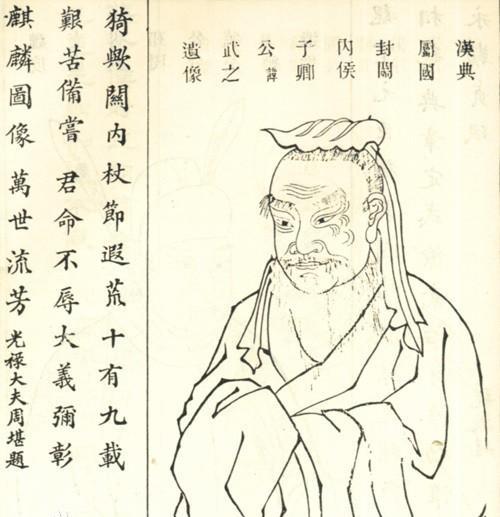 漢典
屬國
封關
内侯
子卿
公諱
武之
遺像
猗歟關内杖節遐荒十有九載
艱苦備嘗君命不辱大義彌彰
麒麟圖像萬世流芳光祿大夫周堪題